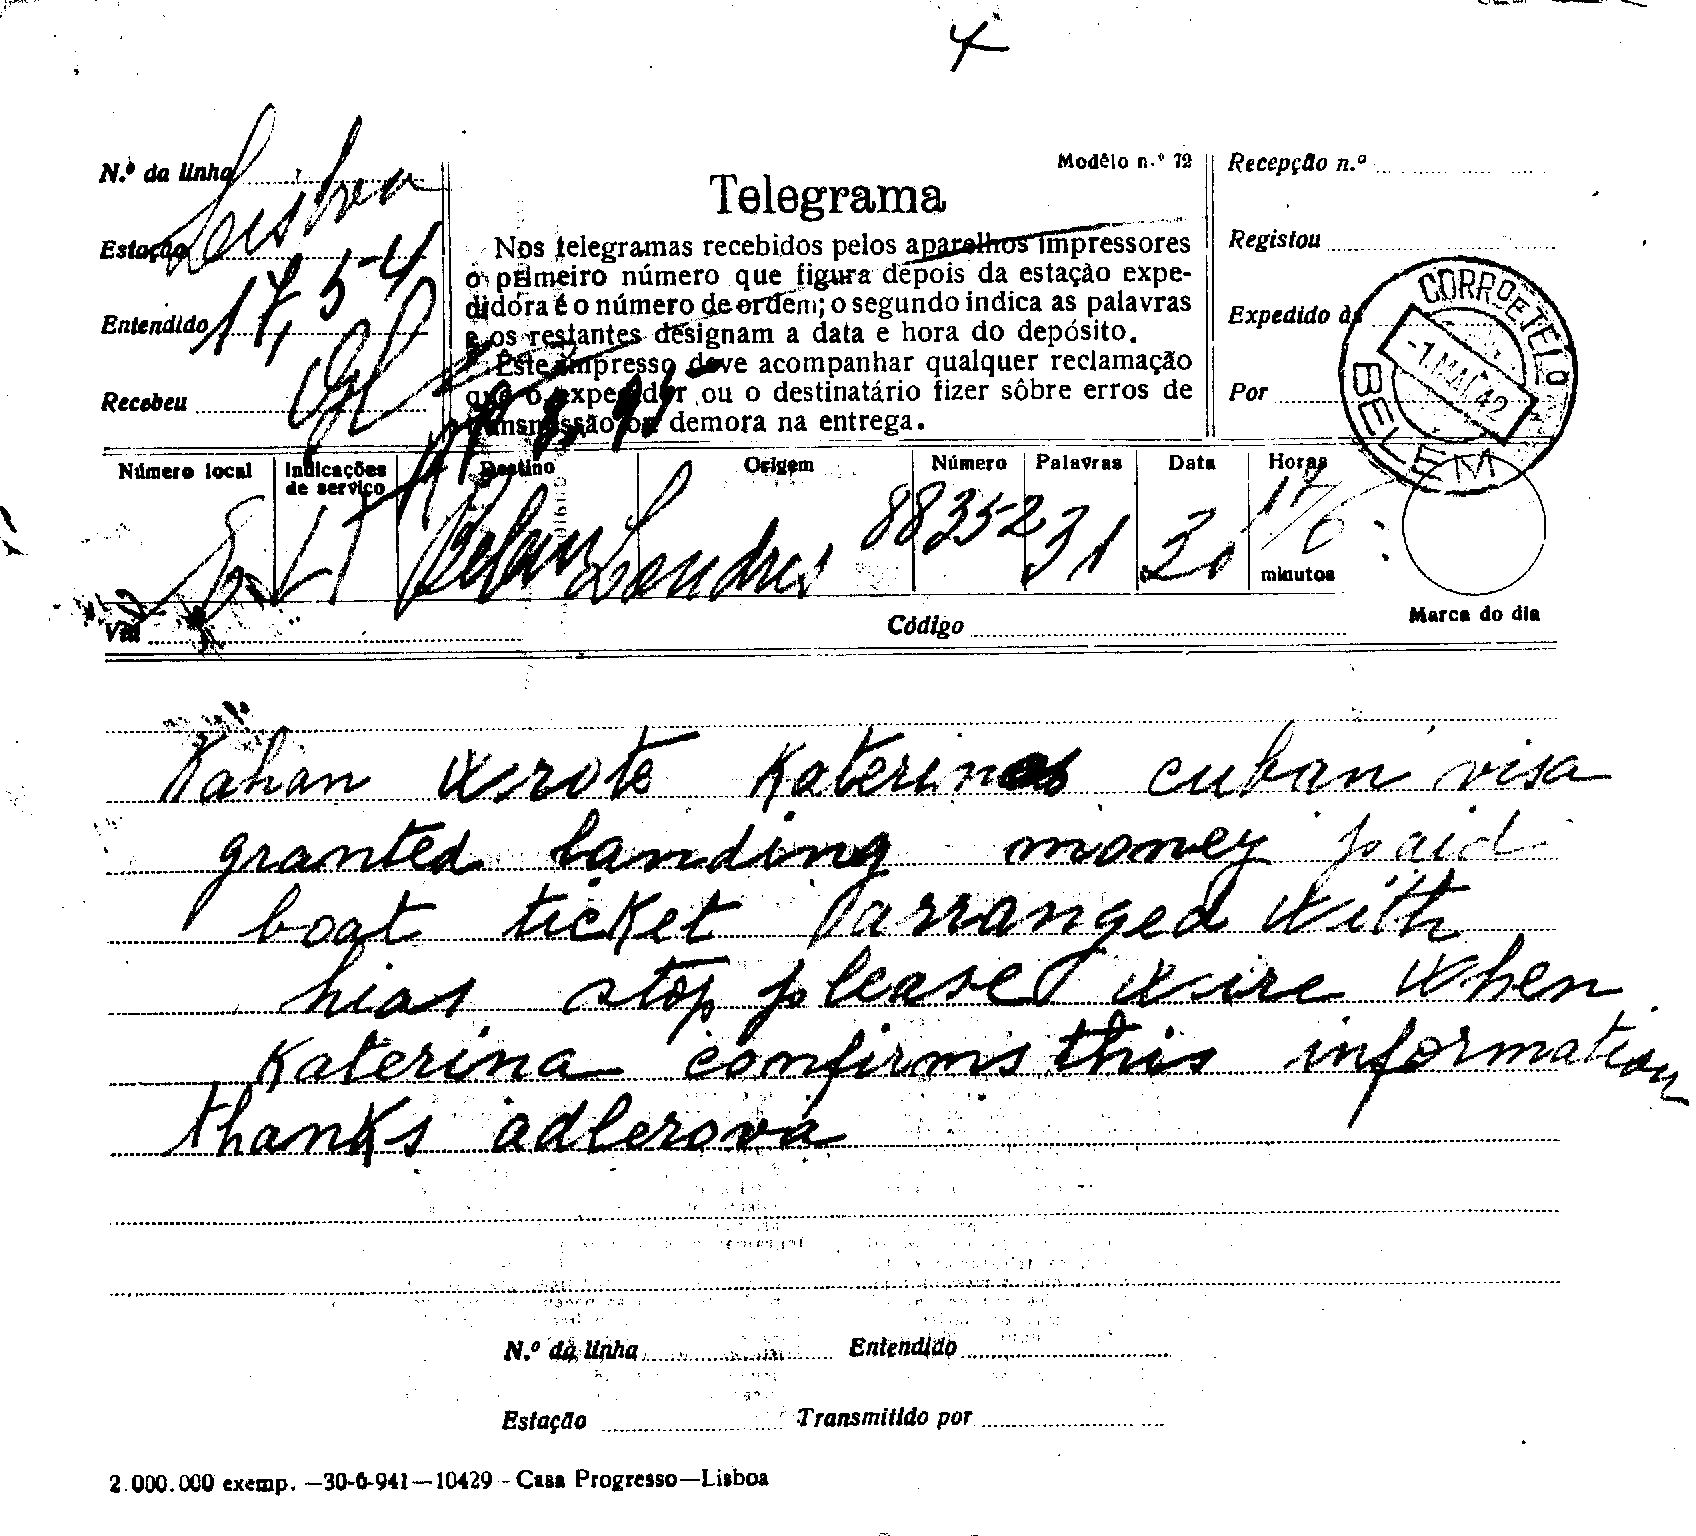 4
N.º da linha
Lisboa
Estação
Entendido 17,54
Recebeu
Modêlo n.º 72
Telegrama
Nos telegramas recebidos pelos aparelhos impressores
o primeiro número que figura depois da estação expe-
didora é o número de ordem; o segundo indica as palavras
e os restantes designam a data e hora do depósito.
Este impresso deve acompanhar qualquer reclamação
que o expedidor ou o destinatário fizer sôbre erros de
transmissão ou demora na entrega.
Recepção n.º
Registou
Expedido às
Por
CORRO E TELO
-1.MAI.42
BELEM
Número local
Indicações de serviço
Destino
Origem
Número
Palavras
Data
Horas
LT Belem Londres 88352 31 30 17/6
minutos
Marca do dia
Via
Código
Kahan wrote Katerinas cuban visa
granted landing money paid
boat ticket arranged with
hias stop please wire when
Katerina confirms this information
thanks adlerova
N.º da linha Entendido
Estação Transmitido por
2.000.000 exemp. —30-6-941—10429 - Casa Progresso—Lisboa